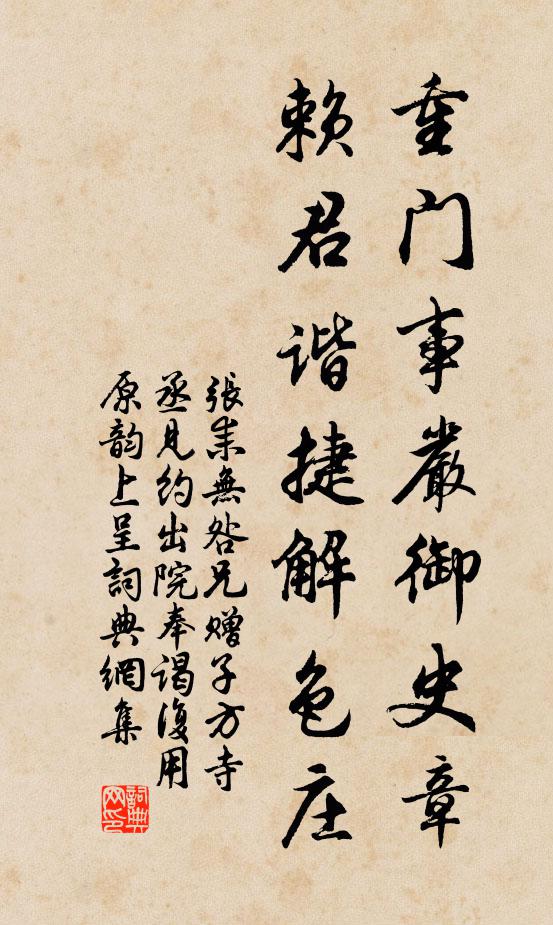 重门事嚴御史章
赖君谐捷解色庄
張耒無咎兄赠子方寺
丞見約出院奉谒復用
原韵上呈詞典網集
詞典网印